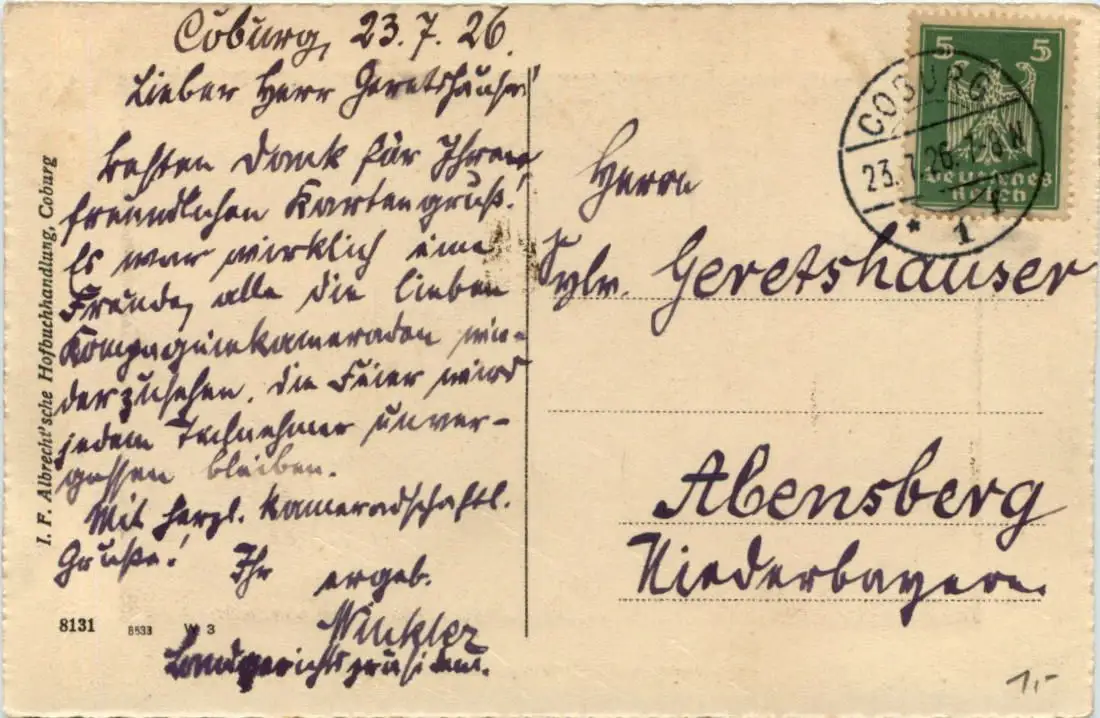 Coburg, 23.7.26.
Lieber Herr Geretshauser!
besten Dank für Ihren
freundlichen Kartengruß!
Es war wirklich eine
Freude, alle die lieben
Kompagniekameraden wie-
derzusehen. Die Feier wird
jedem Teilnehmer unver-
gessen bleiben.
Mit herzl. kameradschaftl.
Gruße!
Ihr ergeb.
Winkler
Landgerichtspräsident.
I. F. Albrecht'sche Hofbuchhandlung, Coburg
8131 8533 W 3
5 5
Deutsches
Reich
COBURG
23.7.26. 7-8 N
* 1
Herrn
Geretshauser
Abensberg
Niederbayern.
1,-